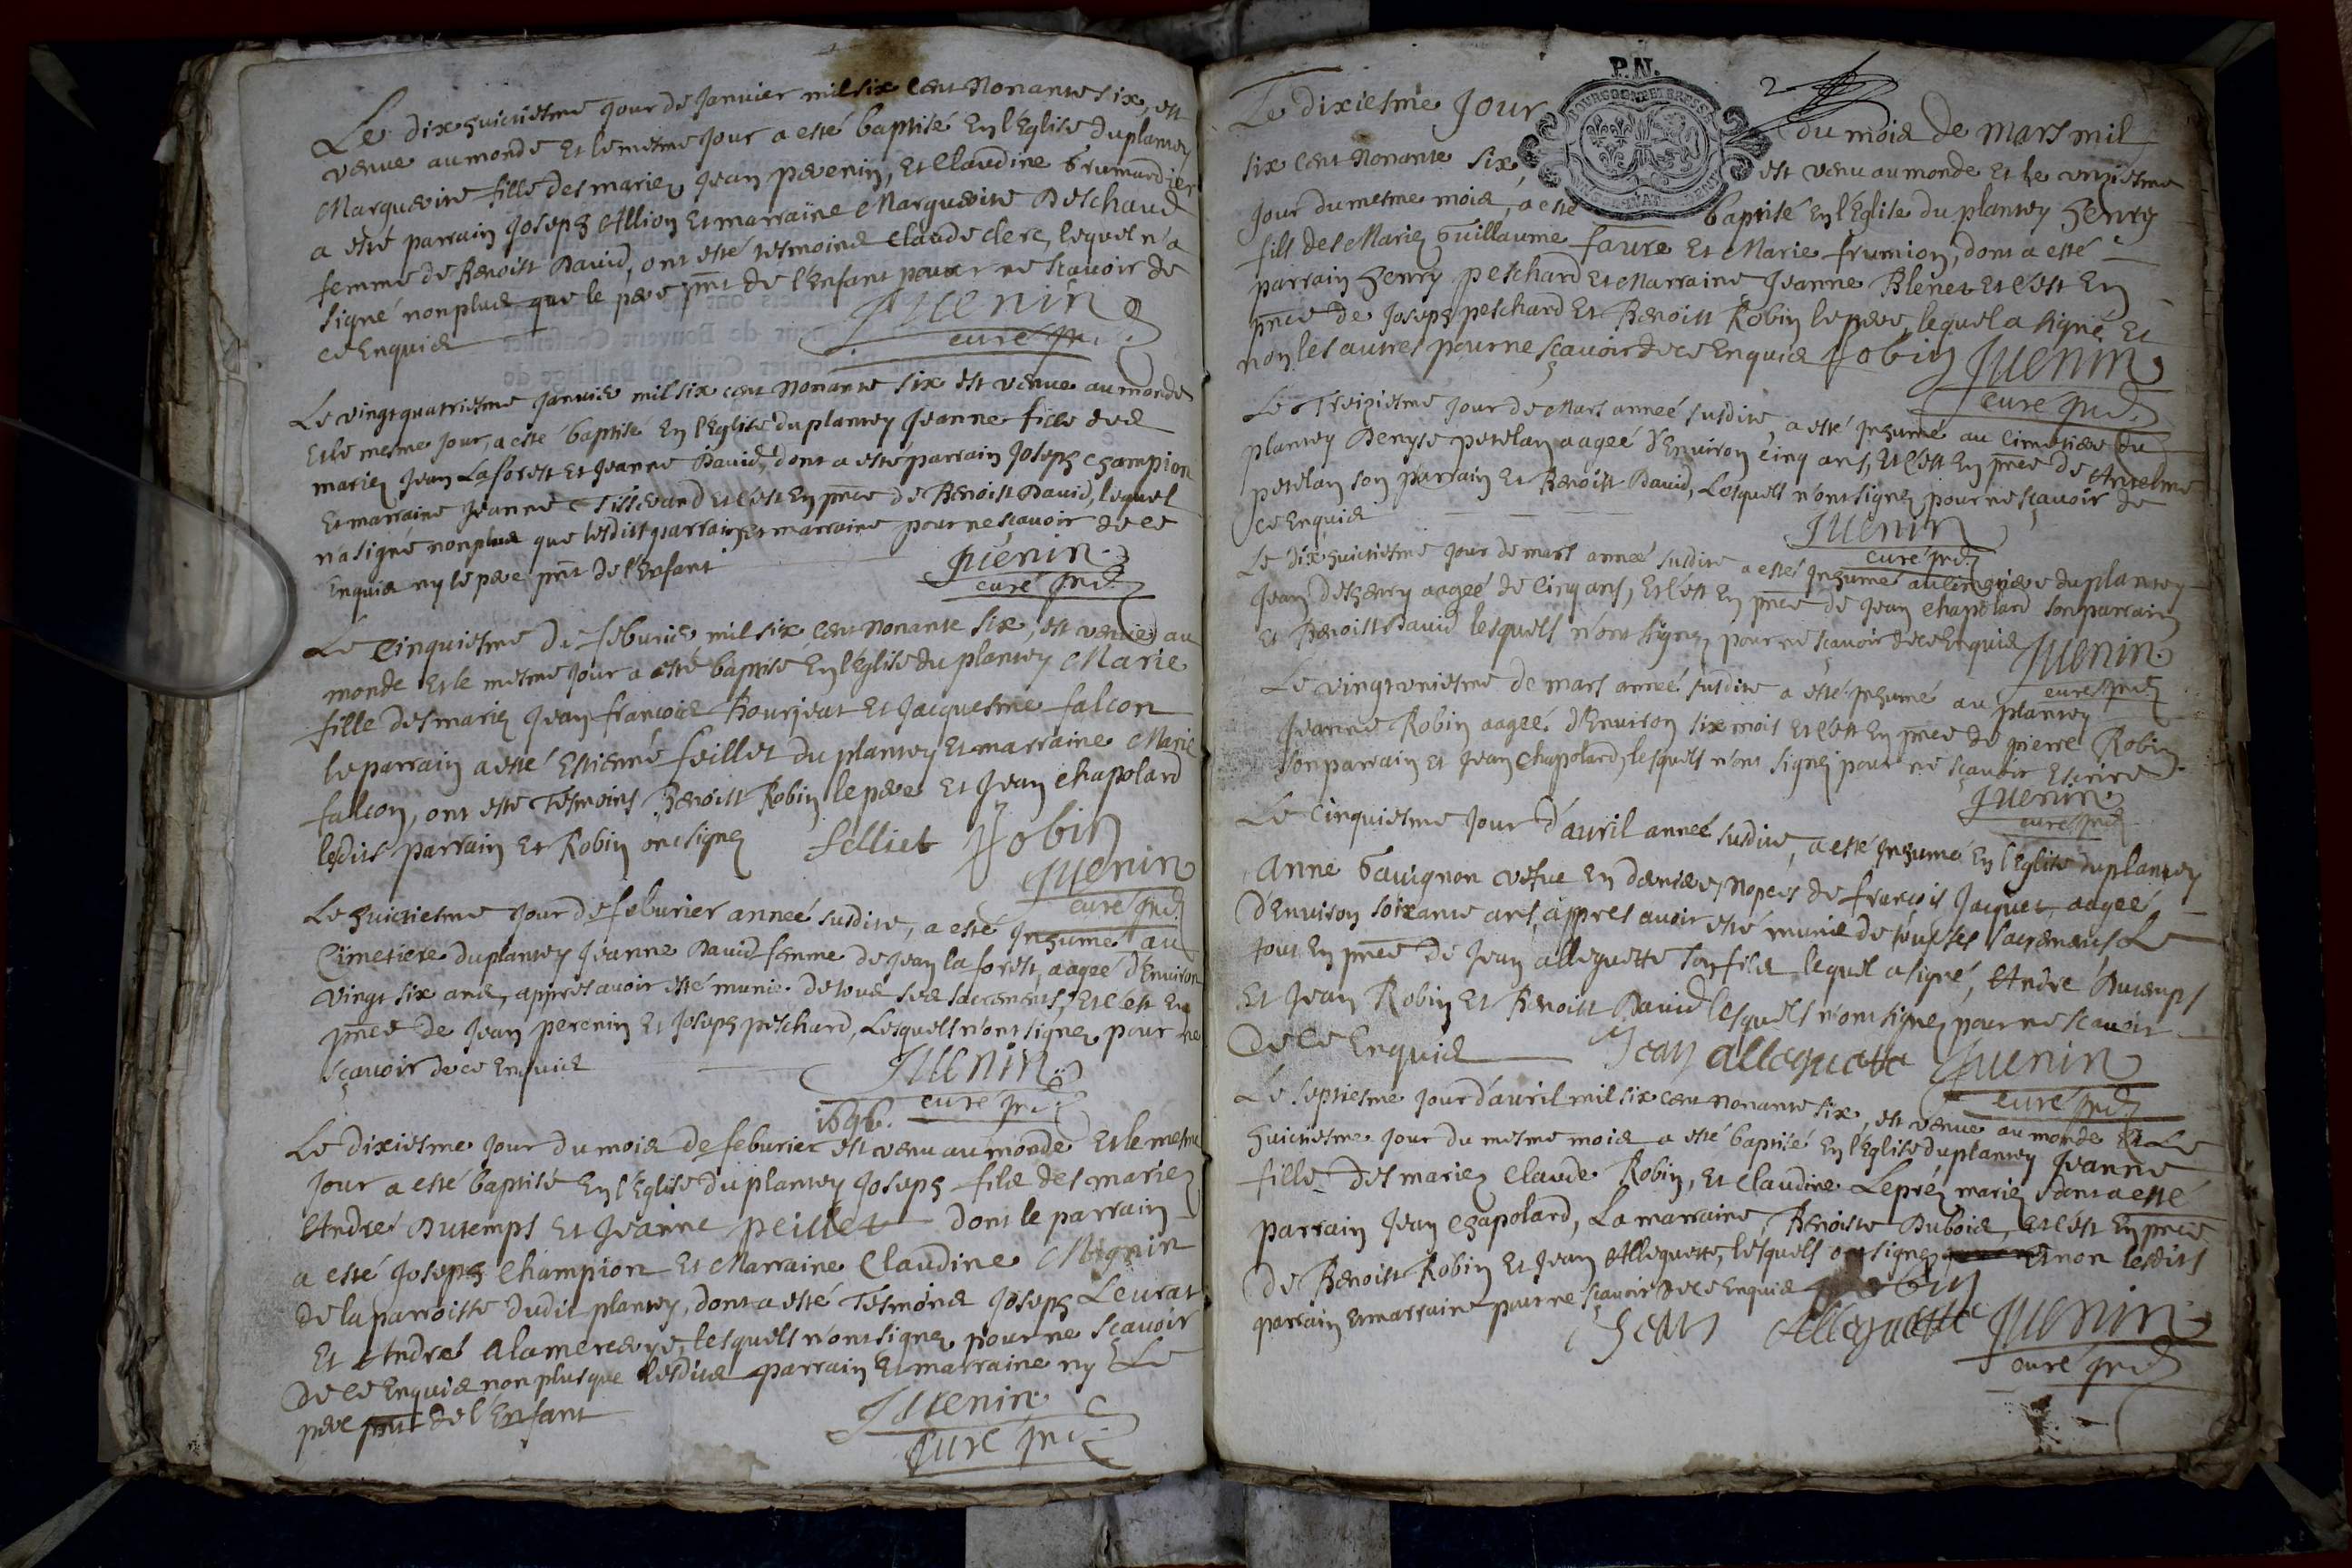 Le dix huictiesme Jour de Janvier mil six cent Nonante six, est
venue au monde Et le mesme Jour a esté baptisé En l'Eglise du plantey
Marguerite fille des mariez Jean perenin, Et Claudine
a esté parrain Joseph Allion Et marraine Marguerite Deschaud
femme de Benoist David, ont esté tesmoins Claude clerc, lequel n'a
signé nonplus que le père pnt de l'Enfant pour ne scavoir de
ce Enquis
Juenin
curé
Le vingt quatriesme Janvier mil six cent Nonante six est venue au monde
Et le mesme Jour, a esté baptisé En l'Eglise du plantey Jeanne fille des
mariez Jean Laforest Et Jeanne David, dont a esté parrain Joseph champion
Et marraine Jeanne Tisserand Et c'est En pnce de Benoist David, lequel
n'a signé nonplus que lesdits parrain Et marraine pour ne sçavoir de ce
Enquis ny le père pnt de l'Enfant
Juenin
curé
Le Cinquiesme de feburier mil six cent Nonante six, est venue au
monde Et le mesme Jour a esté baptisé En l'Eglise du plantey Marie
fille des mariez Jean francois Bourjeat Et Jacquesme falcon
le parrain a esté Estienne feillet du plantey Et marraine Marie
falcon, ont esté Tesmoins Benoist Robin le père Et Jean Chapolard
lesdits parrain Et Robin ont signez felliet Robin
Juenin
curé
Le huictiesme Jour de feburier anneé susdite, a esté Jnhumé au
Cimetiere du plantey Jeanne David femme de Jean laforest, aageé d'Environ
vingt six ans, appres avoir esté munie de tous ses sacrements, Et c'est En
pnce de Jean perenin Et Joseph peschard, Lesquels n'ont signez pour ne
sçavoir de ce Enquis
Juenin
curé
1696.
Le dixiesme Jour du mois de feburier est venu au monde Et le mesme
Jour a esté baptisé En l'Eglise du plantey Joseph fils des mariez
André Dutemps Et Jeanne peillet dont le parrain
a esté Joseph Champion Et Marraine Claudine Mignin
de la parroisse dudit plantey, dont a esté Tesmoins Joseph Leurat
Et André Alamercerye, lesquels n'ont signez pour ne sçavoir
de ce Enquis non plus que lesdits parrain Et marraine ny Le
père pnt de l'Enfant
Juenin
curé
P.N.
2
Le dixiesme Jour du mois de mars mil
six cent nonante six, est venu au monde Et le unziesme
Jour du mesme mois, a esté baptisé En l'Eglise du plantey henry
fils des Mariez Guillaume faure Et Marie frumion, dont a esté
parrain henry peschard Et Marraine Jeanne Blenet Et c'est En
pnce de Joseph peschard Et Benoist Robin le père, lequel a signé Et
non les autres pour ne sçavoir de ce Enquis Robin Juenin
curé
Le Treiziesme Jour de Mars anneé susdite, a esté Jnhumé au Cimetiere du
plantey Denyse petelan aageé d'Environ Cinq ans, Et c'est En pnce de Antelme
petelan son parrain Et Benoist David, Lesquels n'ont signez pour ne sçavoir de
ce Enquis
Juenin
curé
Le dix huictiesme Jour de mars anneé susdite a esté Jnhumé au Cimetiere du plantey
Jean deshenry aageé de Cinq ans, Et c'est En pnce de Jean Chapolard son parrain
Et Benoist David lesquels n'ont signez pour ne sçavoir de ce Enquis Juenin
curé
Le vingt uniesme de mars anneé susdite a esté Jnhumé au plantey
Jeanne Robin aageé d'Environ six mois Et c'est En pnce de pierre Robin
son parrain Et Jean Chapolard, lesquels n'ont signez pour ne sçavoir Escrire
Juenin
curé
Le Cinquiesme Jour d'avril anneé susdite, a esté Jnhumé En l'Eglise du plantey
Anne Gavignon vefue En dernieres Nopces de francois Jacquet aageé
d'Environ soixante ans, appres avoir esté munie de tous ses sacrements Le
tout En pnce de Jean alleguette son fils lequel a signé, André Dutemps
Et Jean Robin Et Benoist David lesquels n'ont signez pour ne scavoir
de ce Enquis Jean alleguette Juenin
curé
Le septiesme Jour d'avril mil six cent nonante six, est venue au monde Et Le
huictiesme Jour du mesme mois a esté baptisé En l'Eglise du plantey Jeanne
fille des mariez Claude Robin, Et Claudine Leprez mariez dont a esté
parrain Jean Chapolard, La marraine Benoiste Dubois, Et c'est En pnce
de Benoist Robin Et Jean Alleguette, lesquels ont signez Et non lesdits
parrain Et marraine pour ne sçavoir de ce Enquis Robin
Jean Alleguette Juenin
curé